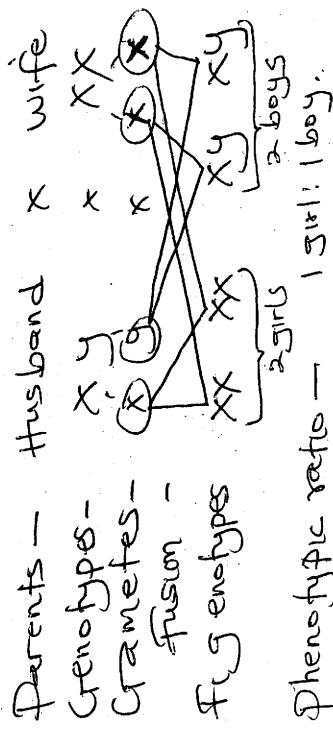 Parents — Husband x wife
Genotypes- Xy x XX
Gametes- x y x x x
Fusion -
F1 genotypes XX XX Xy Xy
2 girls 2 boys
Phenotypic ratio — 1 girl : 1 boy.